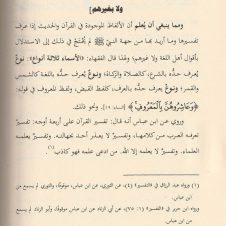 ولا بغيرهم]
ومما ينبغي أن يُعلم أن الألفاظ الموجودة في القرآن والحديث إذا عرف
تفسيرها وما أريد بها من جهة النبي ﷺ لم يُحْتَجْ في ذلك إلى الاستدلال
بأقوال أهل اللغة ولا غيرهم؛ ولهذا قال الفقهاء: «الأسماء ثلاثة أنواع»: نوعٌ
يُعرف حدُّه بالشرع، كالصلاة والزكاة؛ ونوعٌ يُعرف حدُّه باللغة كالشمس
والقمر؛ ونوعٌ يعرف حدُّه بالعرف، كلفظ القبض، ولفظ المعروف في قوله:
﴿وَعَاشِرُوهُنَّ بِالْمَعْرُوفِ﴾ [النساء: ١٩]. ونحو ذلك.
وروي عن ابن عباس أنه قال: تفسير القرآن على أربعة أوجه: تفسيرٌ
تعرفه العرب من كلامها، وتفسيرٌ لا يعذر أحد بجهالته، وتفسيرٌ يعلمه
العلماء، وتفسيرٌ لا يعلمه إلا الله. من ادعى علمه فهو كاذب(١).
(١) رواه عبد الرزاق في «تفسيره» عن الثوري، عن ابن عباس، موقوفًا، والثوري لم يسمع من
ابن عباس.
ورواه ابن جرير في «تفسيره» عن أبي الزناد عن ابن عباس موقوفًا، وأبو الزناد لم يسمع
من ابن عباس.